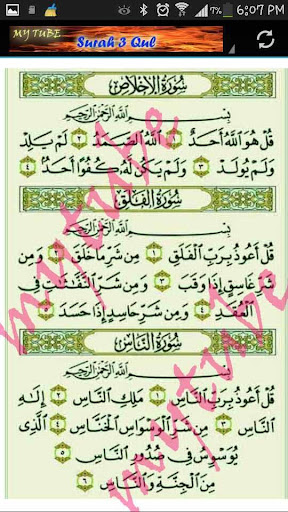 6:07 PM
MY TUBE Surah 3 Qul
سُورَةُ الإِخْلَاصِ
بِسْمِ اللَّهِ الرَّحْمَٰنِ الرَّحِيمِ
قُلْ هُوَ اللَّهُ أَحَدٌ ١ اللَّهُ الصَّمَدُ ٢ لَمْ يَلِدْ
وَلَمْ يُولَدْ ٣ وَلَمْ يَكُن لَّهُ كُفُوًا أَحَدٌ ٤
سُورَةُ الْفَلَقِ
بِسْمِ اللَّهِ الرَّحْمَٰنِ الرَّحِيمِ
قُلْ أَعُوذُ بِرَبِّ الْفَلَقِ ١ مِن شَرِّ مَا خَلَقَ ٢ وَمِن
شَرِّ غَاسِقٍ إِذَا وَقَبَ ٣ وَمِن شَرِّ النَّفَّاثَاتِ فِي
الْعُقَدِ ٤ وَمِن شَرِّ حَاسِدٍ إِذَا حَسَدَ ٥
سُورَةُ النَّاسِ
بِسْمِ اللَّهِ الرَّحْمَٰنِ الرَّحِيمِ
قُلْ أَعُوذُ بِرَبِّ النَّاسِ ١ مَلِكِ النَّاسِ ٢ إِلَٰهِ
النَّاسِ ٣ مِن شَرِّ الْوَسْوَاسِ الْخَنَّاسِ ٤ الَّذِي
يُوَسْوِسُ فِي صُدُورِ النَّاسِ ٥
مِنَ الْجِنَّةِ وَالنَّاسِ ٦
mytube
mytube
mytube